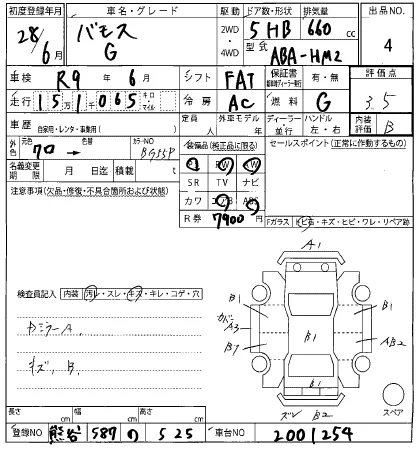 初度登録年月 車名・グレード 駆動 ドア数・形状 排気量 出品No.
28/6月 バモス G 2WD 4WD 5HB 660 cc 4
型式 ABA-HM2
車検 R9年 6月 シフト FAT 保証書 有・無 評価点
走行 15万1千065 キロ マイル 冷房 AC 燃料 G 3.5
車歴 自家用・レンタ・事業用( ) 定員 人 外車モデル 年 ディーラー 並行 ハンドル 左・右 内装評価 B
外色 元色 70 → 色替 カラーNO BG55P 装備品(純正品に限る) セールスポイント(正常に作動するもの)
名義変更期限 月 日迄 積載 t PS PW AW
注意事項(欠品・修復・不具合箇所および状態) SR TV ナビ
カワ エアB ABS
R券 7900円
Fガラス (ヒビ・キズ・ヒビ・ワレ・リペア跡
A1
検査員記入 内装 汚レ・スレ・キズ・キレ・コゲ・穴
B1 B1
カバー A3 B1
中ミラーA. B7 AB2
キズ, B. B1
ズレ B2
スペア
長さ cm 幅 cm 高さ cm
登録NO 熊谷 587 の 525 車台NO 2001254